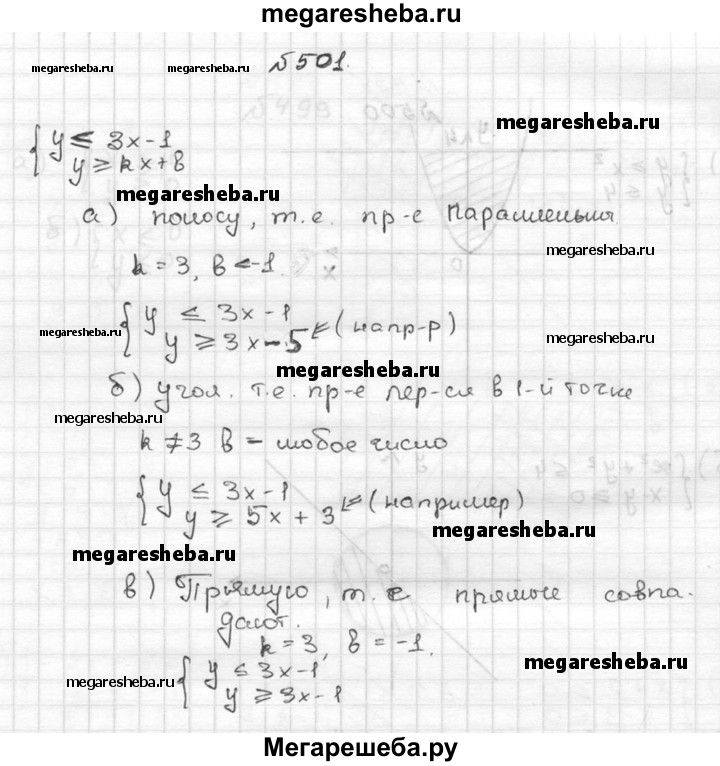 megaresheba.ru
№501.
megaresheba.ru megaresheba.ru
megaresheba.ru
{ y ≤ 3x-1
y ≥ kx+b
megaresheba.ru
а) полосу, т.е. пр-е параллельны
megaresheba.ru
k = 3, b <-1.
{ y ≤ 3x-1
megaresheba.ru megaresheba.ru
y ≥ 3x-5 ⇐ (напр-р)
megaresheba.ru
б) угол. т.е. пр-е пер-ся в 1-й точке
megaresheba.ru
k ≠ 3 b – любое число
{ y ≤ 3x-1
y ≥ 5x + 3 ⇐ (например)
megaresheba.ru
megaresheba.ru
в) Прямую, т.е прямые совпа-
дают.
k = 3, b = -1.
{ y ≤ 3x-1
megaresheba.ru
megaresheba.ru
y ≥ 3x-1
Мегарешеба.ру